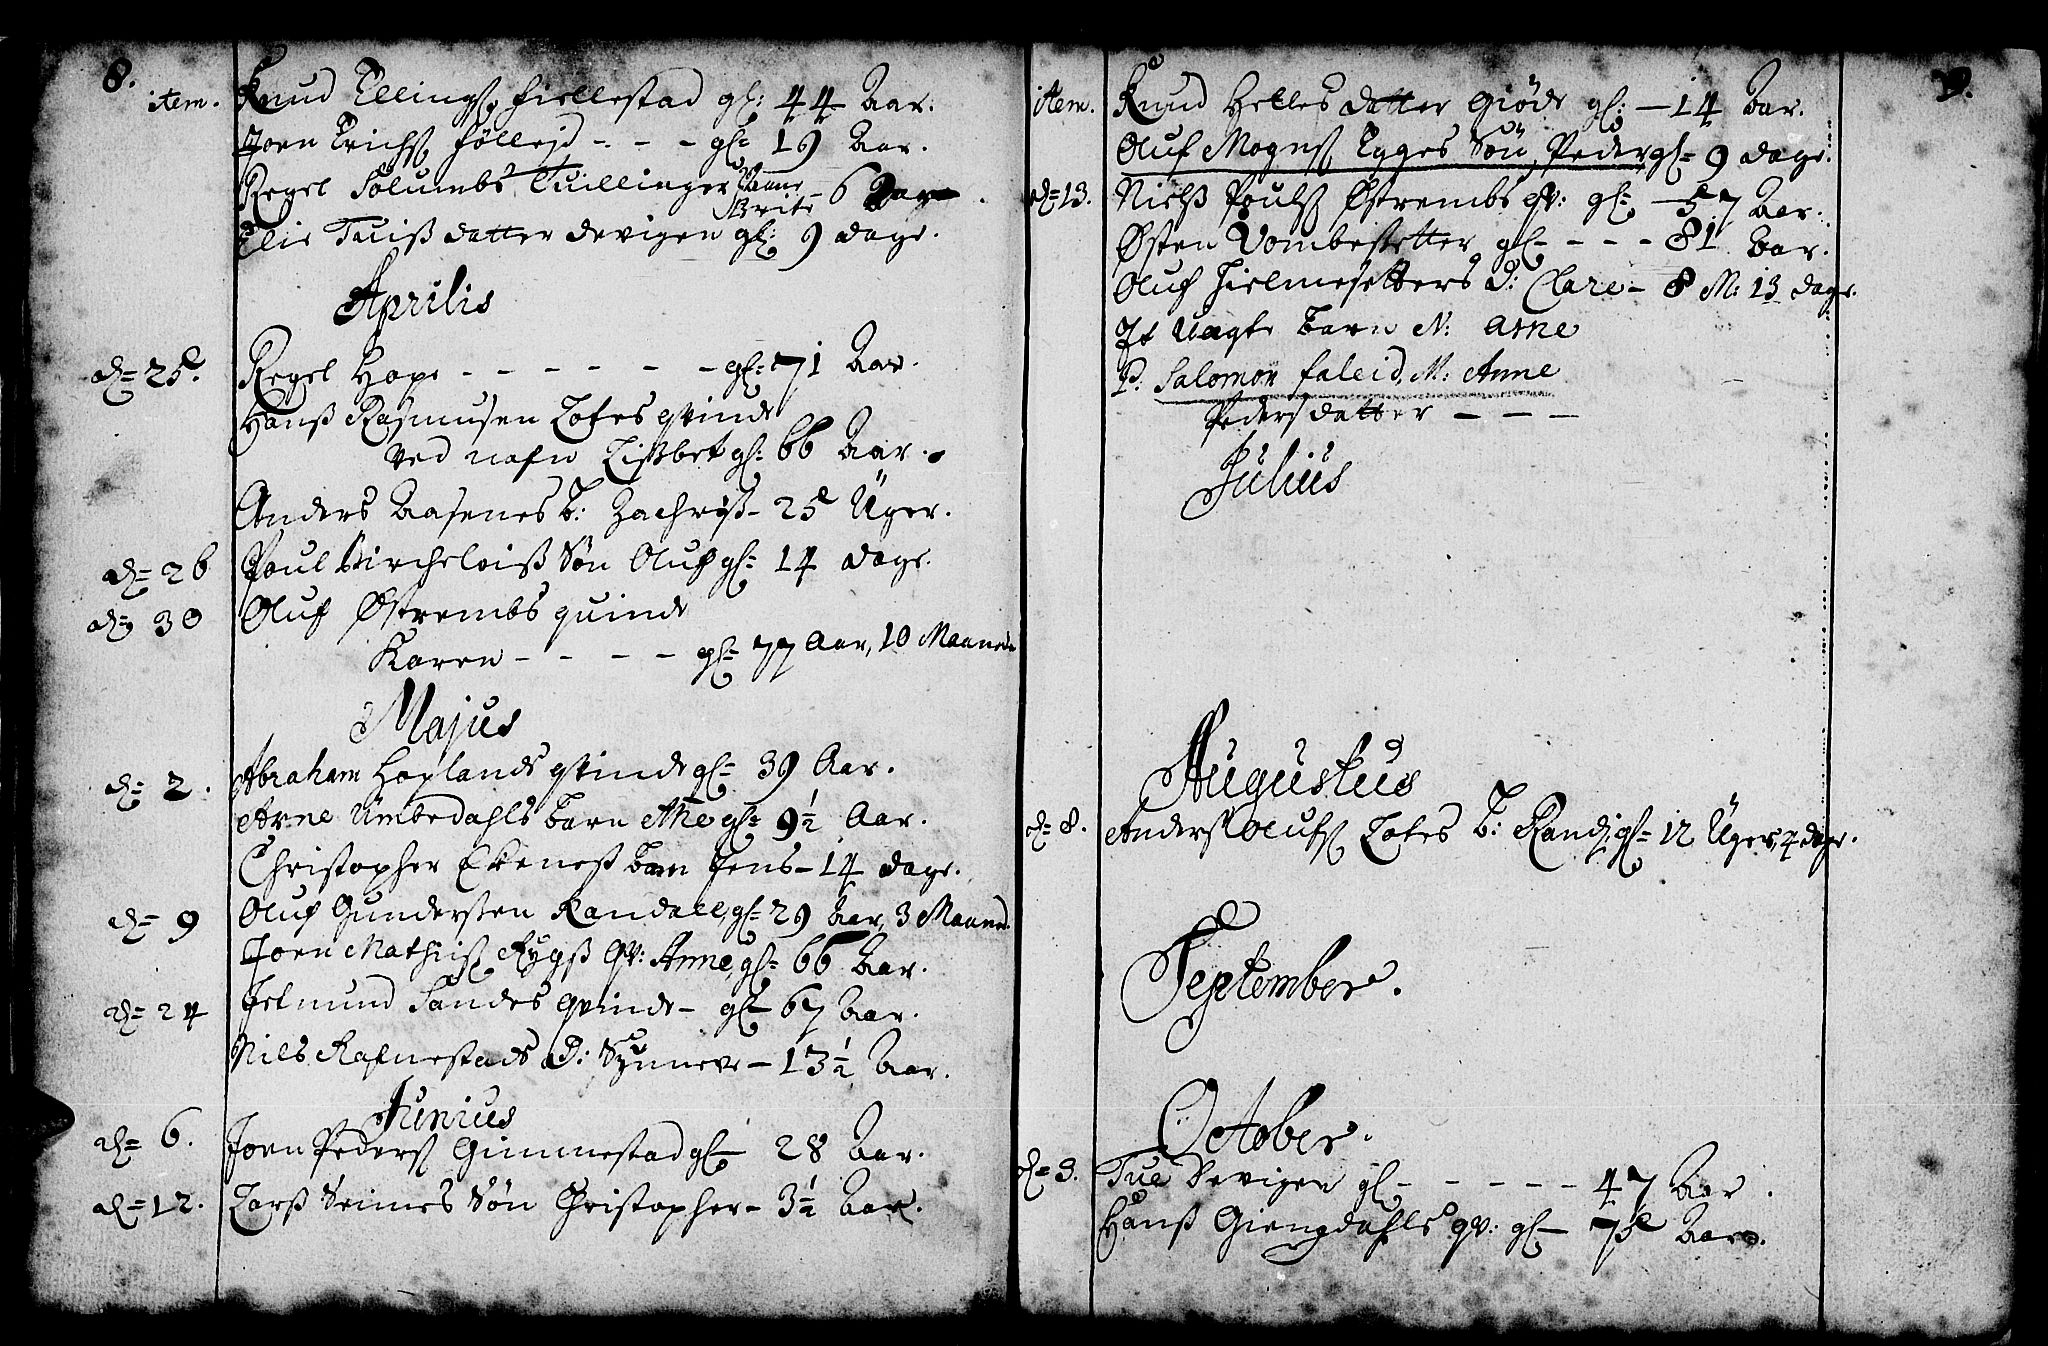 8.
item. Knud Ellings. Hiellestad gl: 44 Aar.
Joen Erichs. Følleid - - - gl: 19 Aar.
Regel Solumbs Tuillinger Anne Brite - 6 Dage.
Elie Tuis datter Devigen gl: 9 dage.
Aprilis
d= 25. Regel Hope - - - - - - gl: 71 Aar.
Hans Rasmusen Lotes qvinde
ved nafn Lisbet gl: 66 Aar.
Anders Aasenes B: Zachris - 25 Uger.
d= 26 Poul Kircheleis Søn Oluf gl= 14 dage.
d= 30 Oluf Østrembs quinde
Karen - - - - gl= 77 Aar, 10 Maaneder
Majus
d= 2. Abraham Hoplands qvinde gl= 39 Aar.
Arne Umbedahls barn Ane gl= 9½ Aar.
Christopher Ekenes barn Jens - 14 dage.
d= 9 Oluf Gundersen Randal, gl= 29 Aar, 3 Maaned.
Joen Mathis. Rygs qv: Anne, gl= 66 Aar.
d= 24 Jelmund Sandes qvinde - gl= 67 Aar.
Nils Rafnestads D: Synneve - 13½ Aar.
Junius
d= 6. Joen Peders. Gimmestad gl= 28 Aar.
d= 12. Lars Seimes Søn Christopher - 3½ Aar.
9.
item. Knud Helles datter Giøde gl: - 14 Aar.
Oluf Mogns. Egges Søn, Peder gl= 9 dage.
d= 13. Niels Pouls. Østrembs qv: gl= - 57 Aar.
Østen Vombestetter gl - - - - 81 Aar.
Oluf Hielmesetters D: Clare - 8 M: 13 dage.
It uægte barn N: Arne
P: Salomon Faleid, M: Anne
Pedersdatter - - -
Julius
Augustus
d= 8. Anders Olufs. Lotes B: Randi, gl= 12 Uger, 4 dage.
September.
October.
d= 3. Tue Devigen gl - - - - - 47 Aar.
Hans Giengdahls qv: gl - 75 Aar.